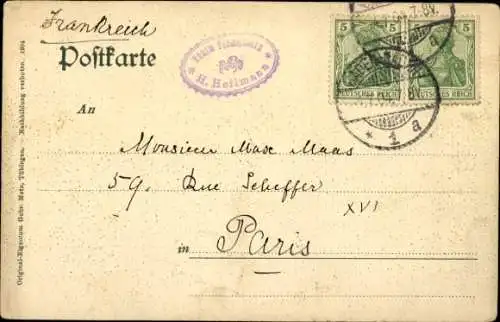 Frankreich
Postkarte
H. Hoffmann
5 5
DEUTSCHES REICH DEUTSCHES REICH
* 1 a
An
Monsieur Max Maas
59. Rue Scheffer
XVI
in Paris
Original-Eigentum Gebr. Metz, Tübingen. — Nachbildung verboten. 1904